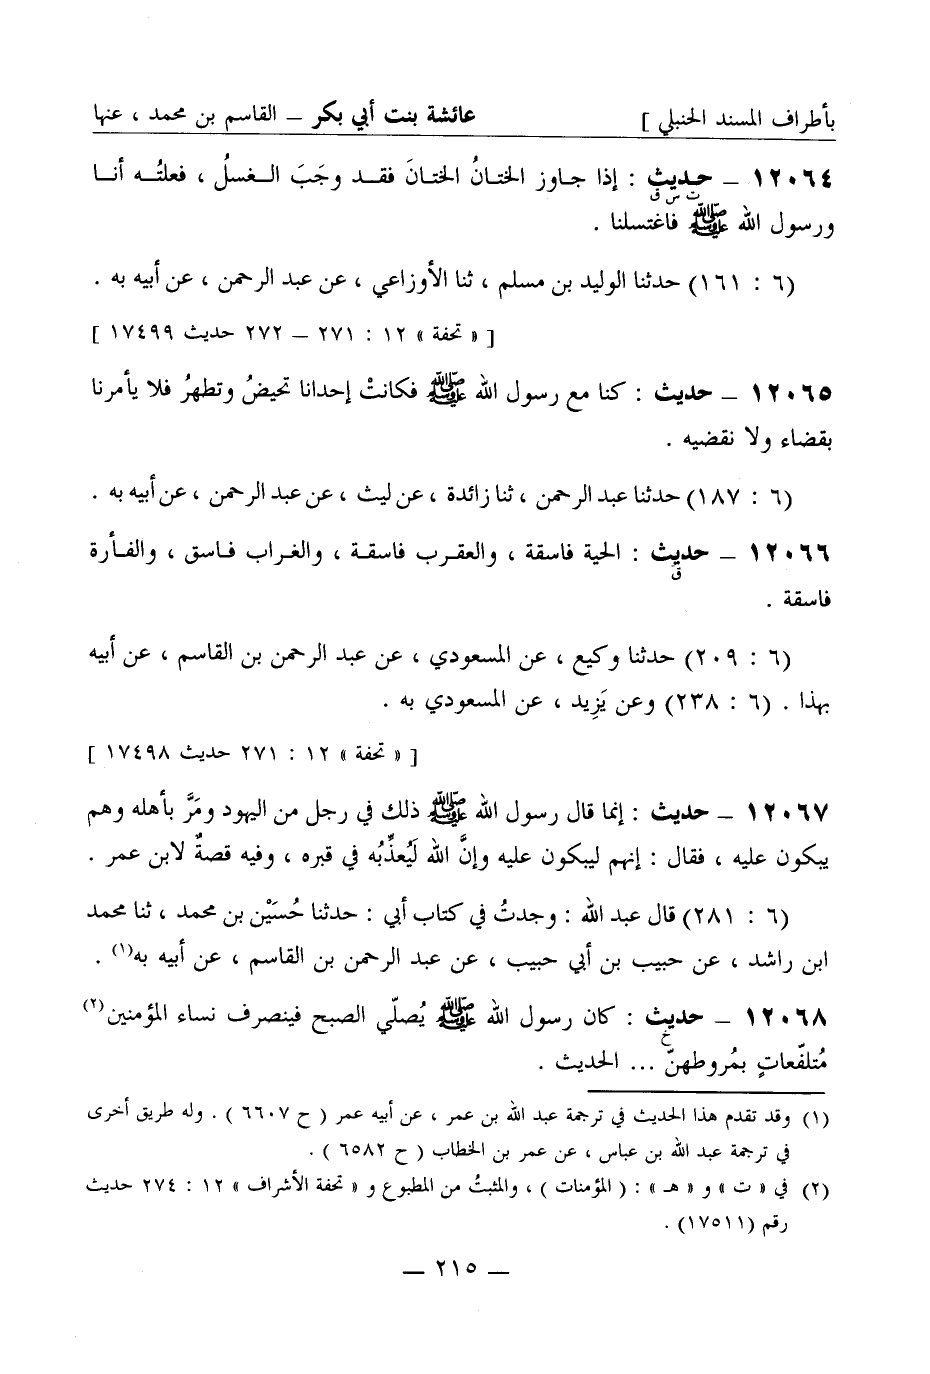 بأطراف المسند الحنبلي ] عائشة بنت أبي بكر – القاسم بن محمد ، عنها
١٢٠٦٤ – حديث : إذا جاوز الختانُ الختانَ فقد وجَبَ الغسلُ ، فعلتُه أنا
ت س ق
ورسول الله ﷺ فاغتسلنا .
(٦ : ١٦١) حدثنا الوليد بن مسلم ، ثنا الأوزاعي ، عن عبد الرحمن ، عن أبيه به .
[ « تحفة » ١٢ : ٢٧١ – ٢٧٢ حديث ١٧٤٩٩ ]
١٢٠٦٥ – حديث : كنا مع رسول الله ﷺ فكانتْ إحدانا تحيضُ وتطهرُ فلا يأمرنا
بقضاء ولا نقضيه .
(٦ : ١٨٧) حدثنا عبد الرحمن ، ثنا زائدة ، عن ليث ، عن عبد الرحمن ، عن أبيه به .
١٢٠٦٦ – حديث : الحية فاسقة ، والعقرب فاسقة ، والغراب فاسق ، والفأرة
ق
فاسقة .
(٦ : ٢٠٩) حدثنا وكيع ، عن المسعودي ، عن عبد الرحمن بن القاسم ، عن أبيه
بهذا . (٦ : ٢٣٨) وعن يَزِيد ، عن المسعودي به .
[ « تحفة » ١٢ : ٢٧١ حديث ١٧٤٩٨ ]
١٢٠٦٧ – حديث : إنما قال رسول الله ﷺ ذلك في رجل من اليهود ومَرَّ بأهله وهم
يبكون عليه ، فقال : إنهم ليبكون عليه وإنَّ الله لَيُعذِّبُه في قبره ، وفيه قصةٌ لابن عمر .
(٦ : ٢٨١) قال عبد الله : وجدتُ في كتاب أبي : حدثنا حُسَيْن بن محمد ، ثنا محمد
ابن راشد ، عن حبيب بن أبي حبيب ، عن عبد الرحمن بن القاسم ، عن أبيه به(١) .
١٢٠٦٨ – حديث : كان رسول الله ﷺ يُصلّي الصبح فينصرف نساء المؤمنين(٢)
خ
مُتلفّعاتٍ بمُروطهنّ ... الحديث .
(١) وقد تقدم هذا الحديث في ترجمة عبد الله بن عمر ، عن أبيه عمر ( ح ٦٦٠٧ ) . وله طريق أخرى
في ترجمة عبد الله بن عباس ، عن عمر بن الخطاب ( ح ٦٥٨٢ ) .
(٢) في « ت » و « هـ » : ( المؤمنات ) ، والمثبتُ من المطبوع و « تحفة الأشراف » ١٢ : ٢٧٤ حديث
رقم (١٧٥١١) .
– ٢١٥ –